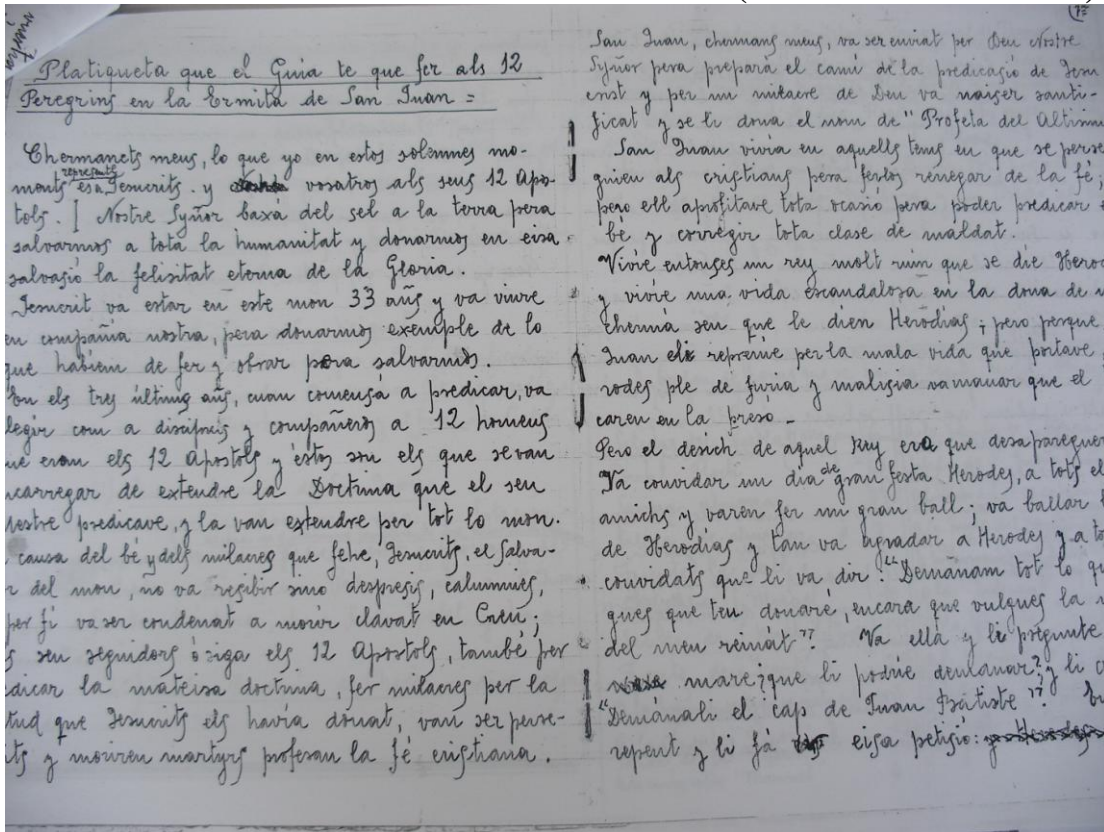 Platiqueta que el Guia te que fer als 12
Peregrins en la Ermita de San Juan =
Chermanets meus, lo que yo en estos solemnes mo-
ments represents es a Jesucrits. y vosatros als seus 12 Apo-
tols. | Nostre Syñor baxá del sel a la terra pera
salvarmos a tota la humanitat y donarmos en eisa
salvasió la felisitat eterna de la Gloria.
Jesucrit va estar en este mon 33 añs y va viure
en compañia nostra, pera donarmos exemple de lo
que habiem de fer y obrar pera salvarmos.
En els tres últims añs, cuan comensá a predicar, va
legir com a disipuls y compañeros a 12 homens
que eran els 12 Apostols y éstos son els que se van
ncarregar de extendre la Doctrina que el seu
Mestre predicave, y la van extendre per tot lo mon.
causa del bé y dels milacres que fehe, Jesucrits, el Salva-
r del mon, no va resibir sino despresis, calumnies,
per fi va ser condenat a morir clavat en Creu;
s seu seguidors ó siga els 12 Apostols, també per
dicar la mateisa doctrina, fer milacres per la
tud que Jesucrits els havía donat, van ser perse-
its y moriren martyrs profesan la fé cristiana.
San Juan, chermans meus, va ser enviat per Deu Nostre
Syñor pera prepará el camí de la predicasió de Jesu
crist y per un milacre de Deu va naiser santi-
ficat y se li dona el nom de "Profeta del Altisim
San Juan vivia en aquells tems en que se perse
guien als cristians pera ferlos renegar de la fé;
pero ell aprofitave tota ocasió pera poder predicar
bé y corregir tota clase de maldat.
Vivie entonses un rey molt ruin que se dié Herod
y vivie una vida escandalosa en la dona de
chermá seu que le dien Herodias; pero perque
Juan els reprenie per la mala vida que portave,
rodes ple de furia y malisia va manar que el
caren en la presó -
Pero el desich de aquel Rey era que desapareguer
Va convidar un dia de gran festa Herodes, a tots el
amichs y varen fer un gran ball; va ballar
de Herodias y tan va agradar a Herodes y a to
convidats que li va dir: "Demánam tot lo qu
gues que teu donaré, encara que vulgues la
del meu reinát". Va ella y li pregunte
mare ¿que li podrie demanar? y li c
"Demánali el cap de Juan Bátiste"
repent y li fá eisa petisió: